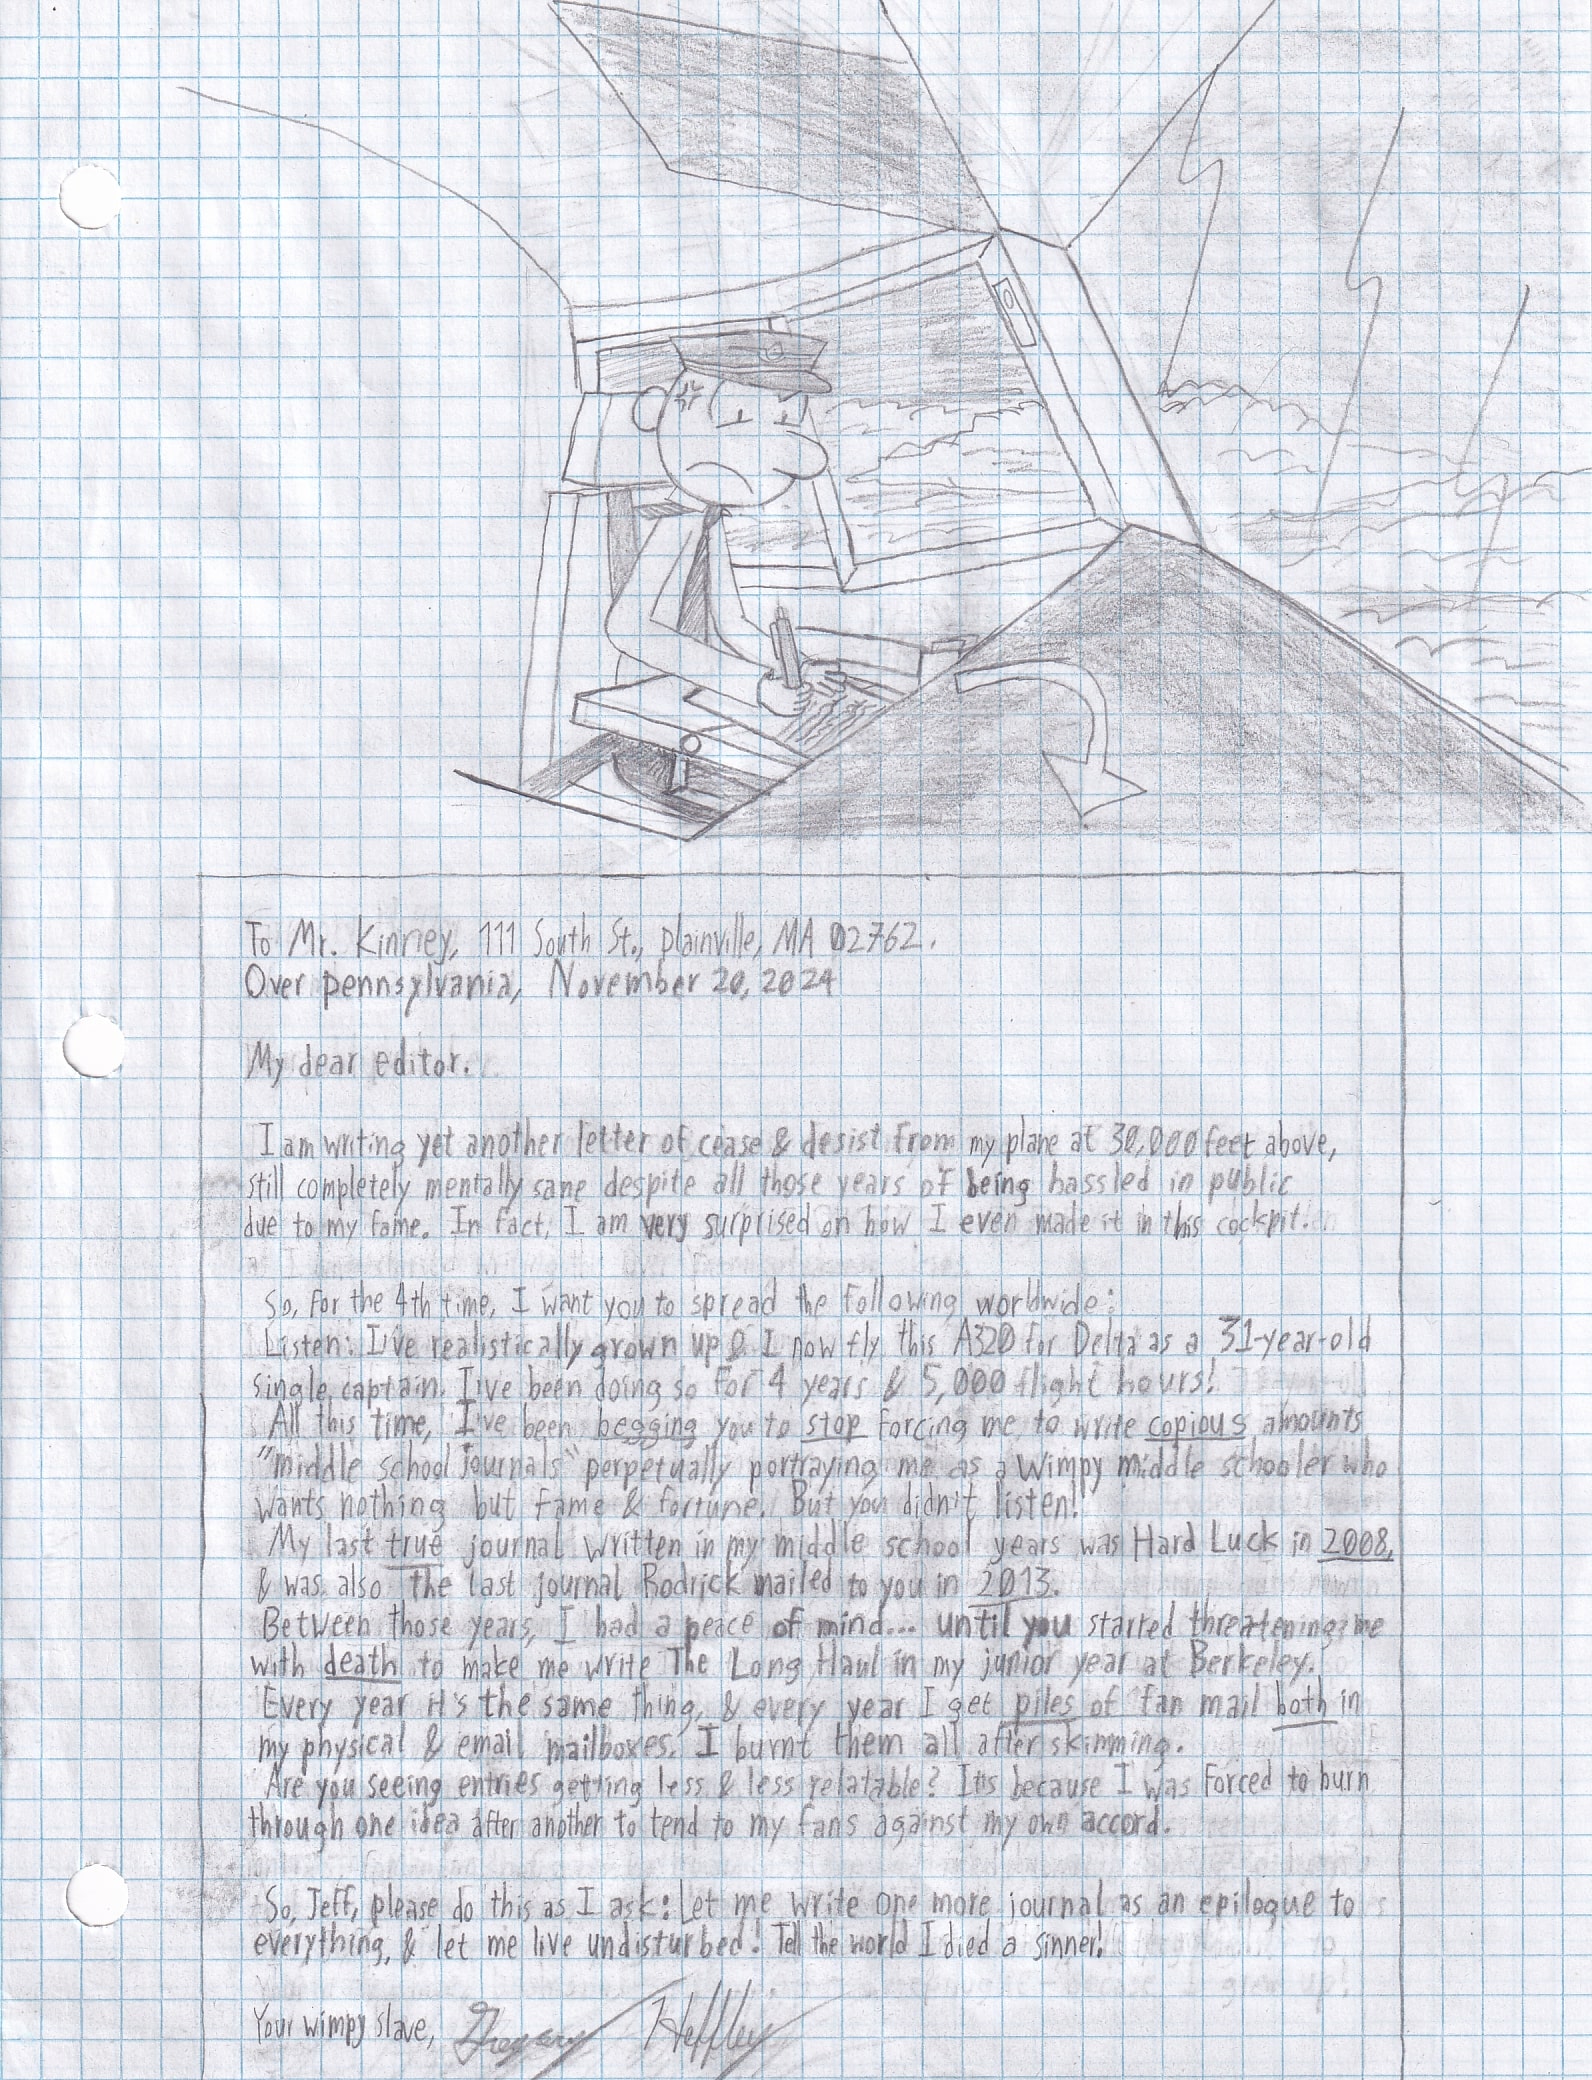 To Mr. Kinney, 111 South St., Plainville, MA 02762.
Over pennsylvania, November 20, 2024
My dear editor.
I am writing yet another letter of cease & desist from my plane at 30,000 feet above,
still completely mentally sane despite all those years of being hassled in public
due to my fame. In fact, I am very surprised on how I even made it in this cockpit.
So, for the 4th time, I want you to spread the following worldwide:
Listen: I've realistically grown up & I now fly this A320 for Delta as a 31-year-old
single captain. I've been doing so for 4 years & 5,000 flight hours!
All this time, I've been begging you to stop forcing me to write copious amounts
"middle school journals" perpetually portraying me as a wimpy middle schooler who
wants nothing but fame & fortune. But you didn't listen!
My last true journal written in my middle school years was Hard Luck in 2008,
& was also the last journal Rodrick mailed to you in 2013.
Between those years, I had a peace of mind... until you started threatening me
with death to make me write The Long Haul in my junior year at Berkeley.
Every year it's the same thing, & every year I get piles of fan mail both in
my physical & email mailboxes. I burnt them all after skimming.
Are you seeing entries getting less & less relatable? It's because I was forced to burn
through one idea after another to tend to my fans against my own accord.
So, Jeff, please do this as I ask: Let me write one more journal as an epilogue to
everything, & let me live undisturbed! Tell the world I died a sinner!
Your wimpy slave, Gregory Heffley